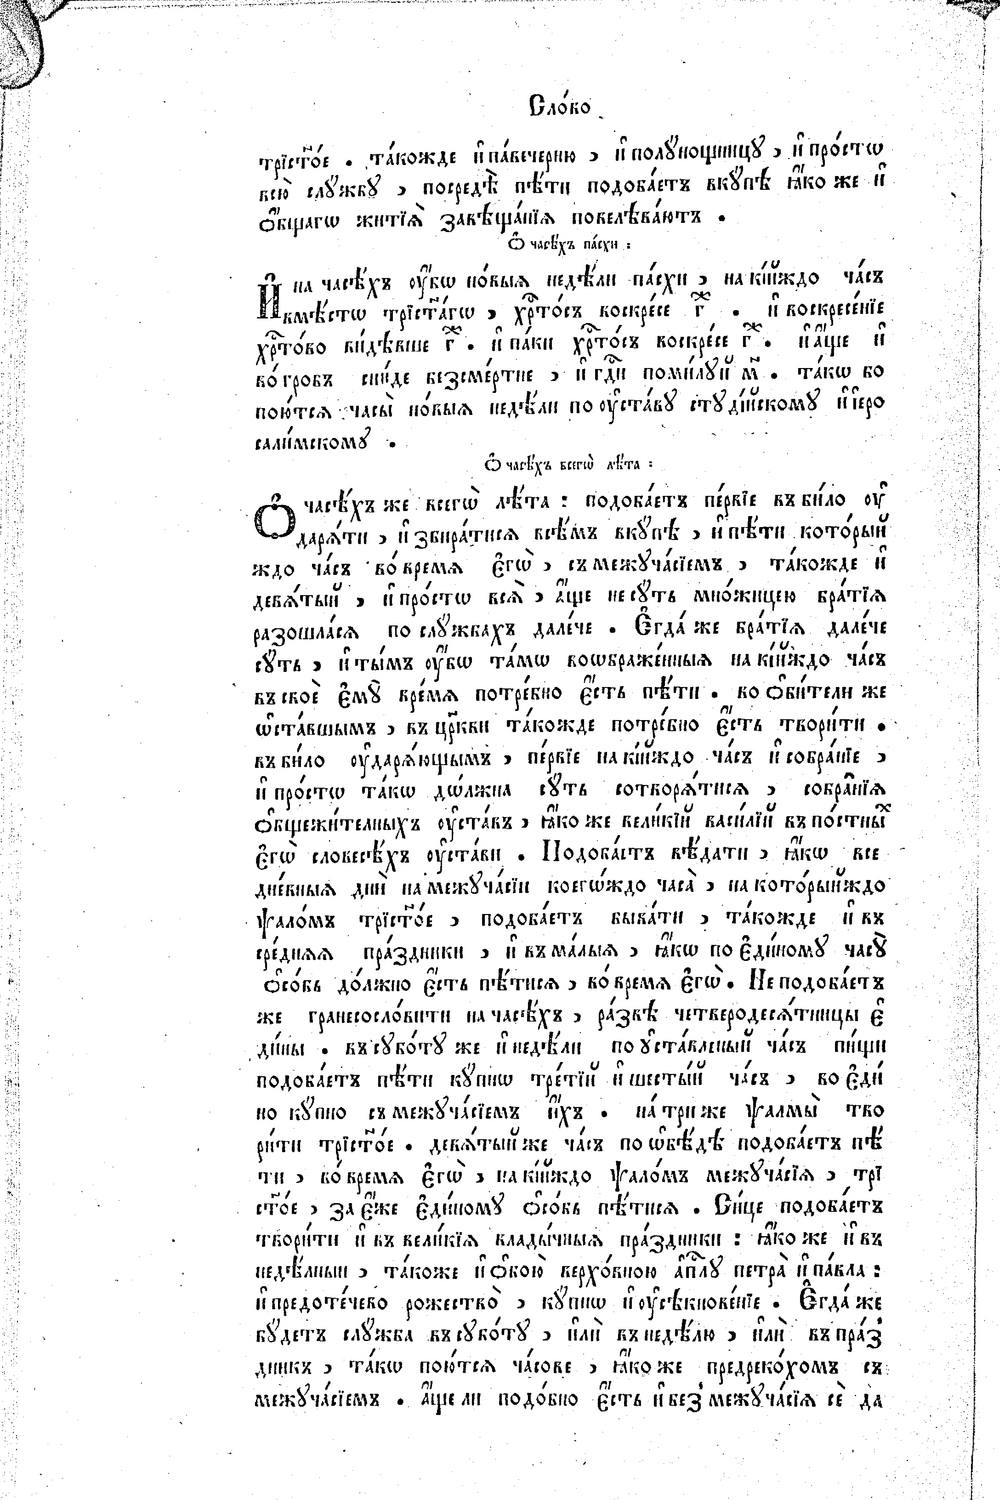 Сло́во
трїст҃о́е . та́кожде и҆ па́вечерню , и҆ полꙋ́нощницꙋ , и҆ про́стѡ
всю̀ слꙋ́жбꙋ , посредѣ̀ пѣ́ти подоба́етъ вкꙋ́пѣ ꙗ҆́ко же и҆
ѻ҆́бщагѡ житїѧ̀ завѣща́нїѧ повелѣва́ютъ .
Ѽ часѣ́хъ па́схи :
И҆ на часѣ́хъ ᲂу҆́бѡ но́выѧ недѣ́ли па́схи , на кі́йждо ча́съ
вмѣ́стѡ трїст҃а́гѡ , хрⷭ҇то́съ воскре́се г҃ⷤ . и҆ воскресе́нїе
хрⷭ҇то́во ви́дѣвше г҃ⷤ . и҆ па́ки хрⷭ҇то́съ воскре́се г҃ⷤ . и҆ а҆́ще и҆
во́ гробъ сни́де безсме́ртне , и҆ гдⷭ҇и поми́лꙋй м҃ . та́кѡ бо
пою́тсѧ часы̀ но́выѧ недѣ́ли по ᲂу҆ста́вꙋ стꙋді́йскомꙋ и҆ і҆еро
сали́мскомꙋ .
Ѽ часѣ́хъ всегѡ̀ лѣ́та :
Ѽ часѣ́хъ же всегѡ̀ лѣ́та : подоба́етъ пе́рвїе въ би́ло ᲂу҆
дарѧ́ти , и҆ збира́тисѧ всѣ́мъ вкꙋ́пѣ , и҆ пѣ́ти кото́рый
ждо ча́съ во́ время є҆гѡ̀ , съ межꙋча́сїемъ , та́кожде и҆
девѧ́тый , и҆ про́стѡ всѧ̀ , а҆́ще не сꙋ́ть мно́жицею бра́тїѧ
разошла́сѧ по слꙋ́жбахъ дале́че . Є҆гда́ же бра́тїѧ дале́че
сꙋ́ть , и҆ ты́мъ ᲂу҆́бѡ та́мѡ воѡбраже́нныѧ на кі́йждо ча́съ
въ своѐ є҆мꙋ̀ вре́мѧ потре́бно є҆́сть пѣ́ти . во ѻ҆би́тели же
ѡ҆ста́вшымъ , въ цр҃кви та́кожде потре́бно є҆́сть твори́ти .
въ би́ло ᲂу҆дарѧ́ющымъ , пе́рвїе на кі́йждо ча́съ и҆ собра́нїе ,
и҆ про́стѡ та́кѡ дѡ́лжна сꙋ́ть сотворѧ́тисѧ , собра́нїѧ
ѻ҆бщежи́телныхъ ᲂу҆ста́въ , ꙗ҆́ко же вели́кїй васи́лїй въ по́стныⷯ
є҆гѡ̀ словесѣ́хъ ᲂу҆ста́ви . Подоба́етъ вѣ́дати , ꙗ҆́кѡ все
дне́вныѧ днѝ на межꙋча́сїи коегѡ́ждо часа̀ , на кото́рыйждо
ѱало́мъ трїст҃о́е , подоба́етъ быва́ти , та́кожде и҆ въ
сре́днѧѧ пра́здники , и҆ въ ма́лыѧ , ꙗ҆́кѡ по є҆ди́номꙋ часꙋ̀
ѻ҆со́бь до́лжно є҆́сть пѣ́тисѧ , во́ время є҆гѡ̀ . Не подоба́етъ
же гранесосло́вити на часѣ́хъ , ра́звѣ четверодесѧ́тницы є҆
ди́ны . въ сꙋбо́тꙋ же и҆ недѣ́ли по ᲂу҆ста́вленый ча́съ пи́щи
подоба́етъ пѣ́ти кꙋ́пнѡ тре́тїй и҆ шесты́й ча́съ , во є҆ди́
но кꙋ́пно съ межꙋча́сїемъ и҆́хъ . на́ три же ѱалмы̀ тво
ри́ти трїст҃о́е . девѧ́тый же ча́съ по ѡ҆бѣ́дѣ подоба́етъ пѣ́
ти , во́ время є҆гѡ̀ , на кі́йждо ѱало́мъ межꙋча́сїѧ , трї
ст҃о́е , за є҆́же є҆ди́номꙋ ѻ҆со́бь пѣ́тисѧ . Си́це подоба́етъ
твори́ти и҆ въ вели́кїѧ влады́чныѧ пра́здники : ꙗ҆́ко же и҆ въ
недѣ́лныи , та́коже и҆ ѻ҆бою̀ верхо́вною а҆пⷭ҇лꙋ петра̀ и҆ па́вла :
и҆ предоте́чево рожество̀ , кꙋ́пнѡ и҆ ᲂу҆сѣкнове́нїе . Є҆гда́ же
бꙋ́детъ слꙋ́жба въ сꙋбо́тꙋ , и҆лѝ въ недѣ́лю , и҆лѝ въ пра́з
дникъ , та́кѡ пою́тсѧ ча́сове , ꙗ҆́ко же предреко́хомъ съ
межꙋча́сїемъ . а҆́ще ли подо́бно є҆́сть и҆ без̾ межꙋча́сїѧ сѐ да